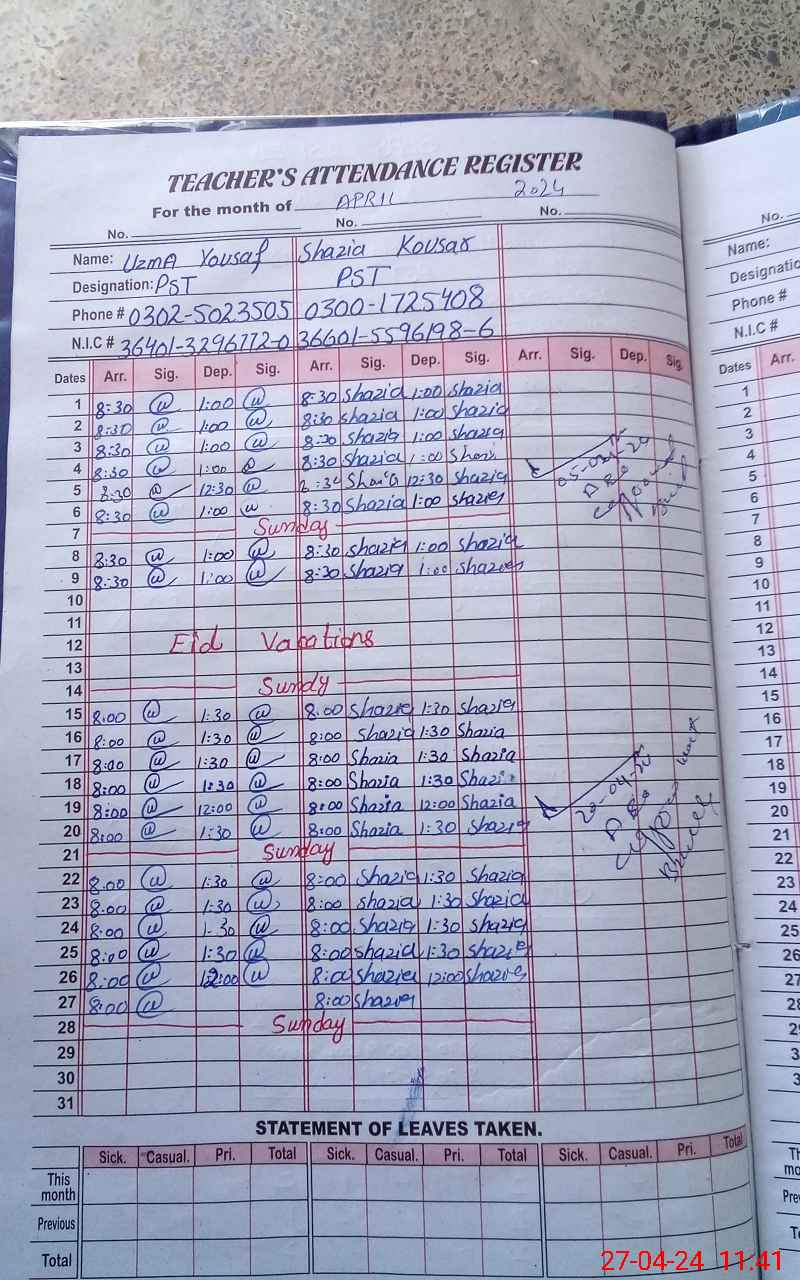 TEACHER'S ATTENDANCE REGISTER
For the month of APRIL 2024
No. No. No.
Name: Uzma Yousaf Shazia Kousar
Designation: PST PST
Phone # 0302-5023505 0300-1725408
N.I.C # 36401-3296772-0 36601-5596198-6
Dates Arr. Sig. Dep. Sig. Arr. Sig. Dep. Sig. Arr. Sig. Dep. Sig.
1 8:30 @ 1:00 @ 8:30 Shazia 1:00 Shazia
2 8:30 @ 1:00 @ 8:30 Shazia 1:00 Shazia
3 8:30 @ 1:00 @ 8:30 Shazia 1:00 Shazia
4 8:30 @ 1:00 @ 8:30 Shazia 1:00
5 8:30 @ 12:30 @ 12:30 Shazia
6 8:30 @ 1:00 @ 8:30 Shazia 1:00 Shazia
05-04-24
7 Sunday
8 8:30 @ 1:00 @ 8:30 Shazia 1:00 Shazia
9 8:30 @ 1:00 @ 8:30 Shazia 1:00 Shazia
10
11
12 Eid Vacations
13
14 Sundy
15 8:00 @ 1:30 @ 8:00 Shazia 1:30 Shazia
16 8:00 @ 1:30 @ 8:00 Shazia 1:30 Shazia
17 8:00 @ 1:30 @ 8:00 Shazia 1:30 Shazia
18 8:00 @ 1:30 @ 8:00 Shazia 1:30 Shazia
19 8:00 @ 12:00 @ 8:00 Shazia 12:00 Shazia
20 8:00 @ 1:30 @ 8:00 Shazia 1:30 Shazia
20-04-24
21 Sunday
22 8:00 @ 1:30 @ 8:00 Shazia 1:30 Shazia
23 8:00 @ 1:30 @ 8:00 Shazia 1:30 Shazia
24 8:00 @ 1:30 @ 8:00 Shazia 1:30 Shazia
25 8:00 @ 1:30 @ 8:00 Shazia 1:30 Shazia
26 8:00 @ 12:00 @ 8:00 Shazia 12:00 Shazia
27 8:00 @ 8:00 Shazia
28 Sunday
29
30
31
STATEMENT OF LEAVES TAKEN.
Sick. Casual. Pri. Total Sick. Casual. Pri. Total Sick. Casual. Pri. Total
This month
Previous
Total
No.
Name:
Designatio
Phone #
N.I.C #
Dates Arr.
1
2
3
4
5
6
7
8
9
10
11
12
13
14
15
16
17
18
19
20
21
22
23
24
25
26
27
28
27-04-24 11:41